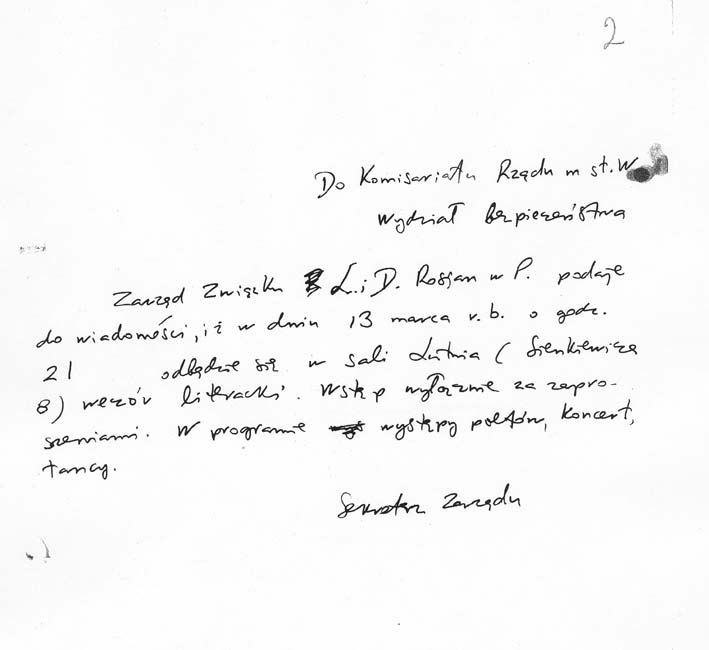 2
Do Komisariatu Rządu m st. W
Wydział Bezpieczeństwa
Zarząd Związku L. i D. Rosjan w P. podaje
do wiadomości, iż w dniu 13 marca r. b. o godz.
21 odbędzie się w sali Lutnia (Sienkiewicza
8) weczór literacki. Wstęp wyłącznie za zapro-
szeniami. W programie występy poetów, koncert,
tancy.
Sekretarz Zarządu